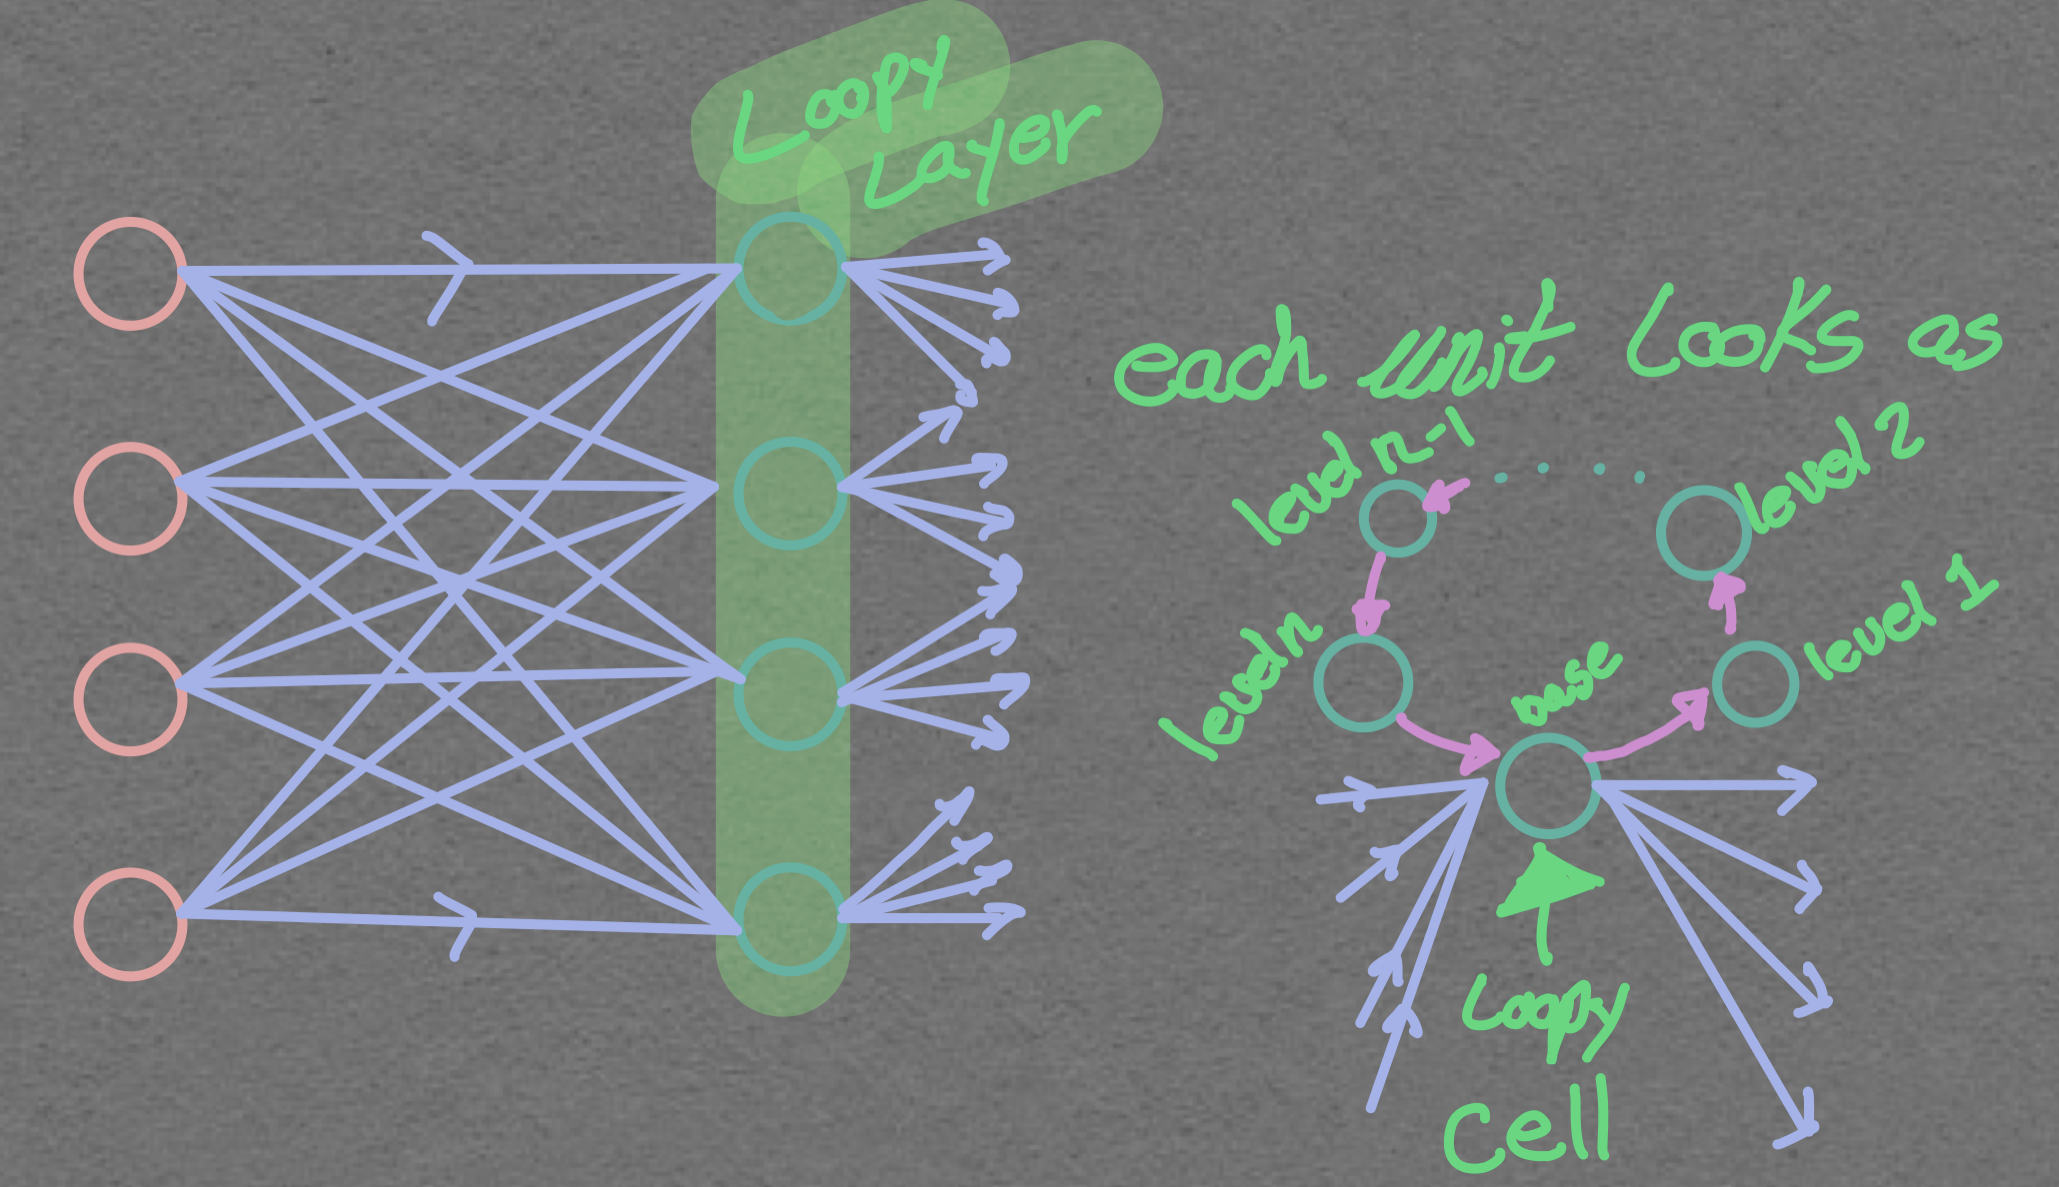 Loopy
Layer
each unit Looks as
level n-1
level 2
level n
base
level 1
Loopy
Cell